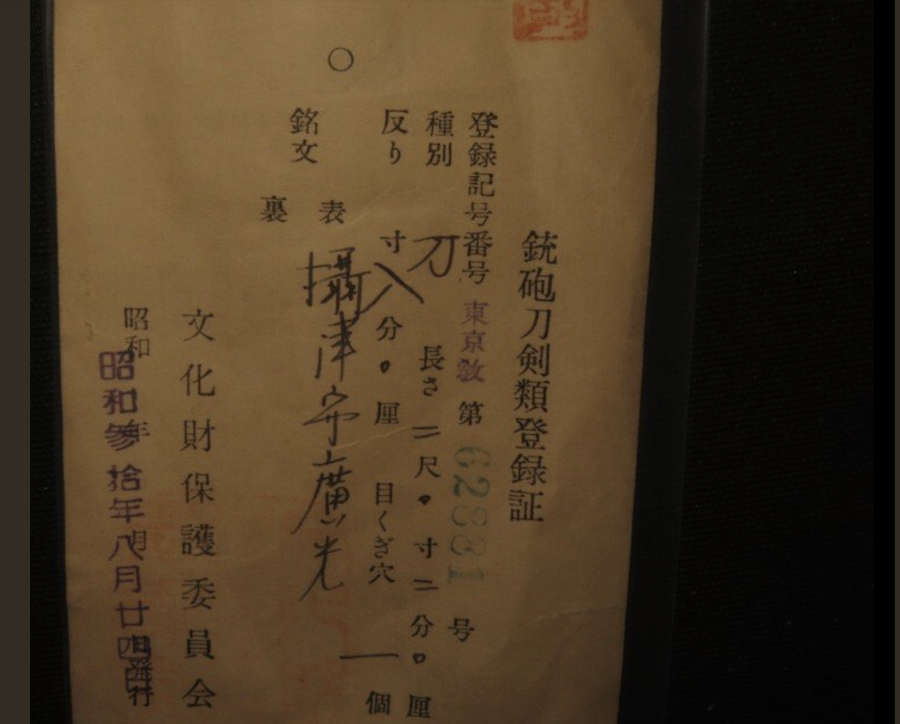 銃砲刀剣類登録証
登録記号番号 東京教 第 62881 号
種別 刀 長さ 二尺 . 寸 二 分 0 厘
反り 寸 八 分 0 厘 目くぎ穴 一 個
銘文 表 攝津守廣光
裏
文化財保護委員会
昭和 年 月 日発行
昭和参拾年八月廿四日